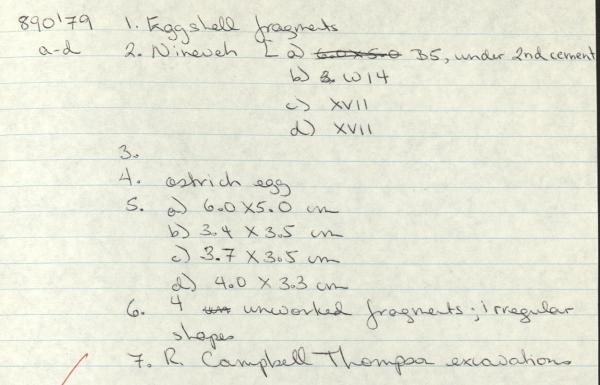 890'79 1. Eggshell fragments
a-d 2. Nineveh [ a) 6.0x5.0 B5, under 2nd cement
b) 3. W14
c) XVII
d) XVII
3.
4. ostrich egg
5. a) 6.0 X 5.0 cm
b) 3.4 X 3.5 cm
c) 3.7 X 3.5 cm
d) 4.0 X 3.3 cm
6. 4 un unworked fragments; irregular
shapes
7. R. Campbell Thompson excavations